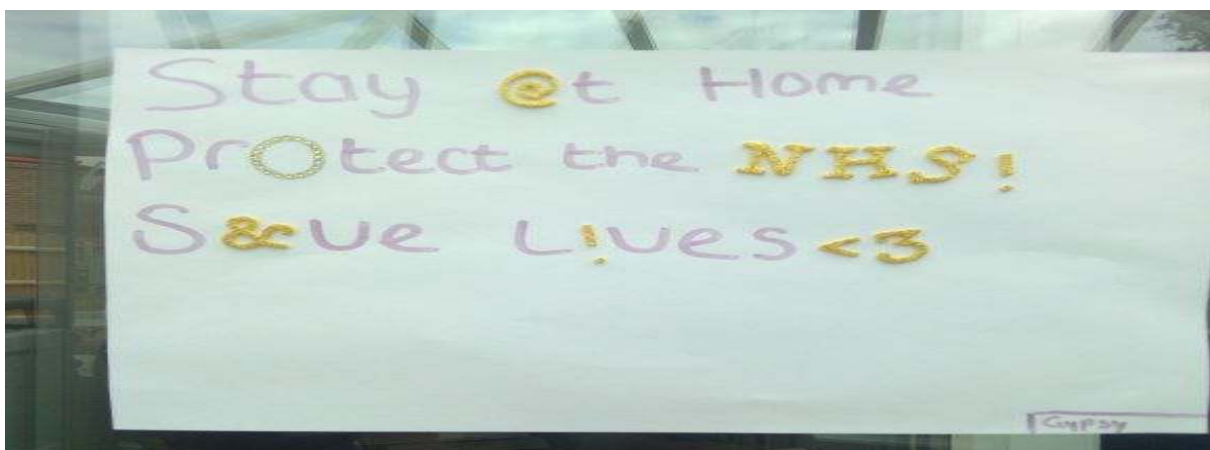 Stay @t Home
PrOtect the NHS!
S&ve L!ves<3
Gypsy